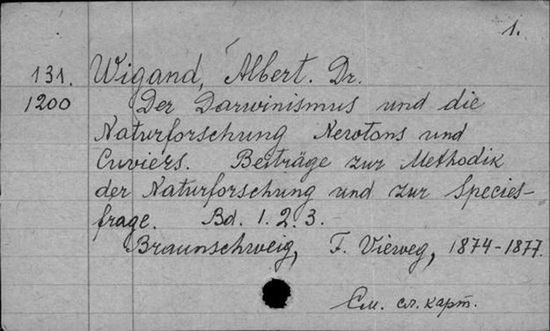 1.
131. Wigand, Albert. Dr.
1200 Der Darwinismus und die
Naturforschung Newtons und
Cuviers. Beiträge zur Methodik
der Naturforschung und zur Species-
frage. Bd. 1. 2. 3.
Braunschweig, F. Vieweg, 1874-1877.
См. сл. карт.